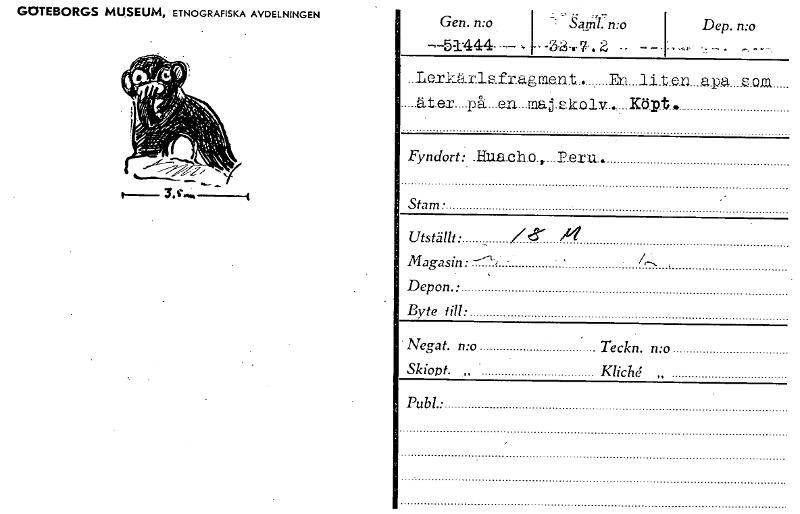 GÖTEBORGS MUSEUM, ETNOGRAFISKA AVDELNINGEN
3,5 m
Gen. n:o Saml. n:o Dep. n:o
51444 32.7.2
Lerkärlsfragment. En liten apa som
äter på en majskolv. Köpt.
Fyndort: Huacho, Peru.
Stam:
Utställt: 18 M
Magasin:
Depon.:
Byte till:
Negat. n:o Teckn. n:o
Skiopt. „ Kliché „
Publ.: